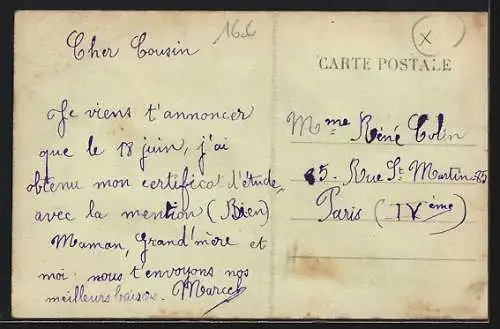 16.6
x
Cher Cousin
CARTE POSTALE
Je viens t'annoncer
que le 18 juin, j'ai
obtenu mon certificat d'étude
avec la mention (Bien)
Maman, Grand'mère et
moi nous t'envoyons nos
meilleurs baisers. Marcel
Mme Réné Colin
85. Rue St Martin 85
Paris (IVème)